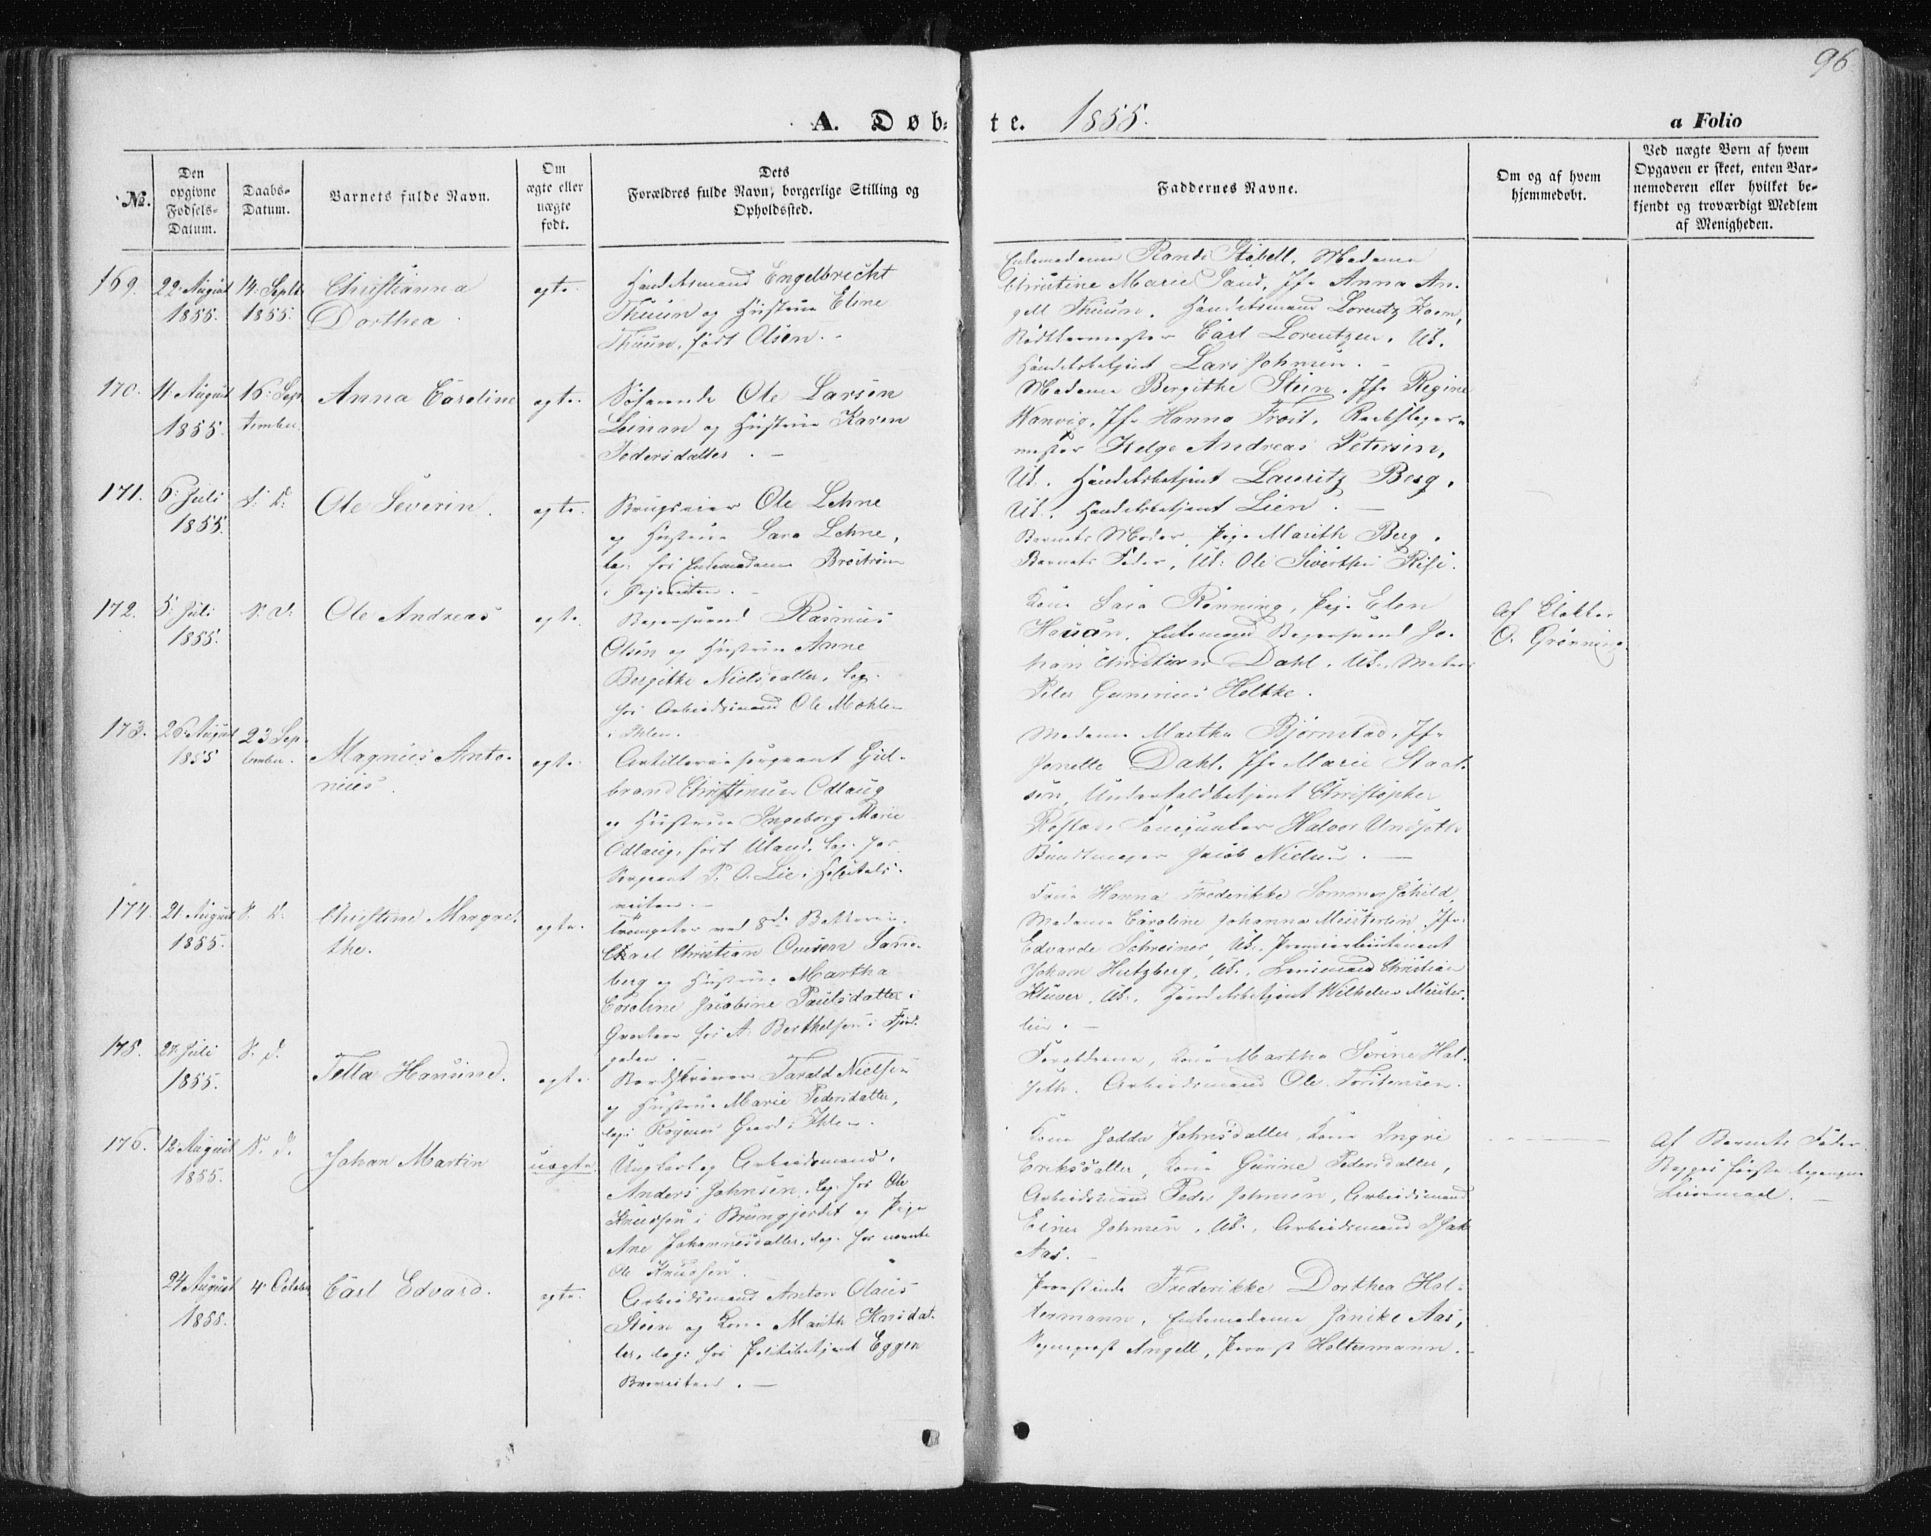 96
A. Døb-te. 1855.
a Folio
No.
Den opgivne Fødsels-Datum.
Daabs-Datum.
Barnets fulde Navn.
Om ægte eller uægte født.
Dets Forældres fulde Navn, borgerlige Stilling og Opholdssted.
Faddernes Navne.
Om og af hvem hjemmedøbt.
Ved uægte Børn af hvem Opgaven er skeet, enten Barnemoderen eller hvilket bekjendt og troværdigt Medlem af Menigheden.
169. 22 August 1855. 14 Septb 1855. Christianna Dorthea. egte.
Handelsmand Engelbrecht
Thuun og Hustrue Eline
Thuun, født Olsen.
Enkemadame Stabell, Madame
Christine Marie Sand, Jfr Anna An-
gell Thuun, Handelsmand Lorentz Koen,
Carl Lorentzen, Uk.
Handelsbetjent Lars Johnsen.
170. 11 August 1855. 16 September Anna Caroline egte.
Søfarende Ole Larsen
Leinan og Hustrue Karen
Pedersdatter.
Madame Bergithe Stein, Jfr Regine
Wanvig, Jfr Hanna Trost, Rebslager-
mester Helge Andreas Petersen,
Uk. Handelsbetjent Lauritz Berg,
Uk. Handelsbetjent Lien.
171. 6 Juli 1855. S. D. Ole Severin. egte.
Brugseier Ole Lehne
og Hustrue Sara Lehne,
log: hos Enkemadame Broström
Barnets Moder, Pige Marith Berg,
Barnets Fader, Uk: Ole Sivertsen Rise.
172. 5 Juli 1855. S. D. Ole Andreas egte.
Bagersvend Rasmus
Olsen og Hustrue Anne
Bergitte Nielsdatter, log.
hos Arbeidsmand Ole Mohle-
i Ihlen.
Kone Sara Rønning, Pige Elen
Houan, Enkemand Bagersvend Jo-
han Christian Dahl, Uk. Maler
Peter Gunerius Holtke.
Af Klokker
O. Grønning
173. 26 August 1855 23 September Magnus Antonius. egte.
Artilleriesergeant Gul-
brand Christensen Odlaug
og Hustrue Ingeborg Marie
Odlaug, født Uland, log. hos
Sergeant P. O. Lie i Hospitals-
veiten.
Madame Martha Bjørnstad, Jfr
Jonette Dahl, Jfr Marie Staal-
sen, Underfoldbetjent Christopher
Rostad, Halvor Undseth
Bundtmager Jacob Nielsen.
174. 21 August 1855. S. D. Christine Margrethe. egte.
Trompeter ved 8de Batterie
Carl Christian Ovesen Sand-
berg og Hustrue Martha
Caroline Jacobine Paulsdatter i
Qvarteer hos A. Berthelsen i Fjord-
gaden.
Frue Hanna Frederikke Sommerschild,
Madame Caroline Johanna Meisterlin, Jfr
Edvarde Schreiner, Uk. Premierlieutenant
Johan Hertzberg, Uk. Lensmand Christian
Klüver, Uk. Handelsbetjent Wilhelm Meister-
lin.
175. 27 Juli 1855. S. D. Tella Hansine. egte.
Bordskriver Tarald Nielsen
og Hustrue Marie Pedersdatter,
log: Rognes Gaard i Ihlen.
Forældrene, Kone Martha Serine Hal-
seth, Arbeidsmand Ole Torstensen.
176. 12 August 1855. S. D. Johan Martin uægte.
Ungkarl og Arbeidsmand
Anders Johnsen, log. hos Ole
Knudsen i Brungjerdet og Pige
Ane Johannesdatter, log. hos nævnte
Ole Knudsen.
Kone Jodda Johnsdatter, Kone Ingri
Eriksdatter, Kone Gurine Pedersdatter,
Arbeidsmand Peder Johnsen, Arbeidsmand
Einer Johnsen, Uk. Arbeidsmand Isak
Aas.
Af Barnets Fader
Begges første
Leiermaal.
24 August 1855. 4 October Carl Edvard. egte.
Arbeidsmand Anton Olaus
Steen og Kone Marith Knudsdat-
ter, log: hos Politibetjent Eggen
Provstinde Frederikke Dorthea Hol-
termann, Enkemadame Janike Aas,
Angell, Provst Holtermann.